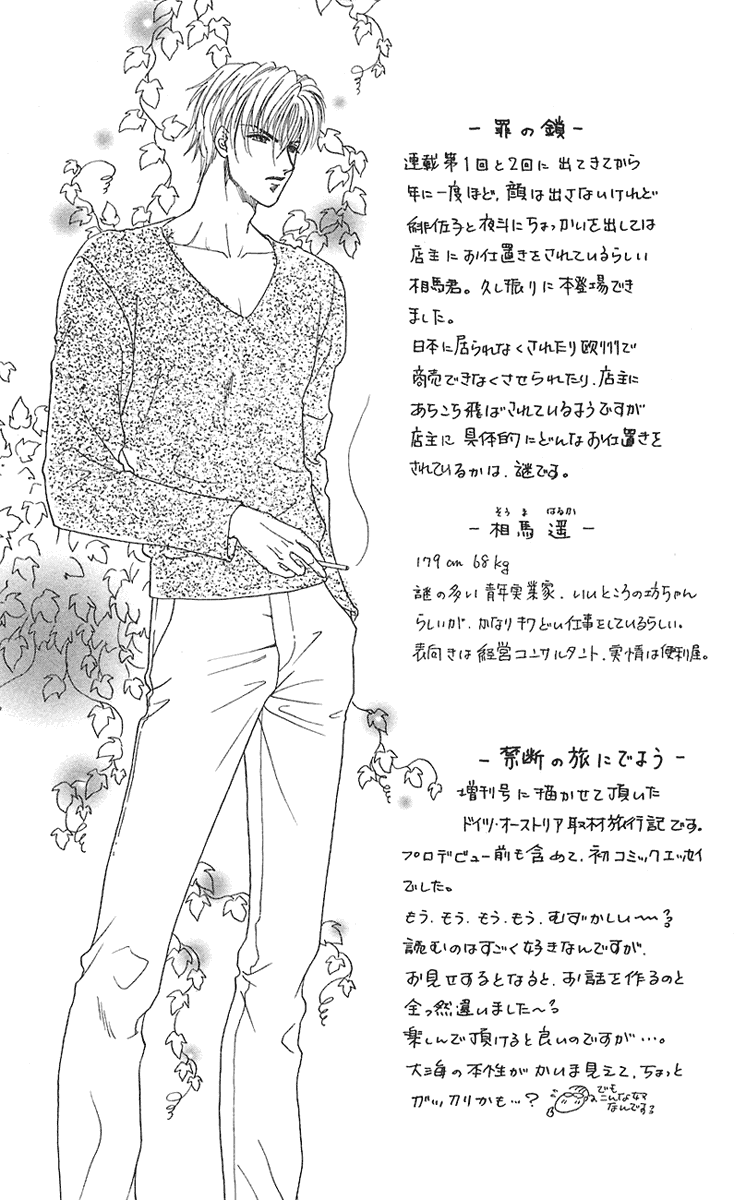 - 罪の鎖 -
連載第1回と2回に 出てきてから
年に一度ほど、顔は出さないけれど
緋佐子と夜斗にちょっかいを出しては
店主に お仕置きをされているらしい
相馬君。久し振りに 本登場でき
ました。
日本に居られなくされたり 欧州で
商売できなくさせられたり、店主に
あちこち飛ばされているようですが
店主に 具体的にどんなお仕置きを
されているかは、謎です。
そうま はるか
- 相馬 遥 -
179cm 68kg
謎の多い 青年実業家、いいところの坊ちゃん
らしいが、かなりキワどい仕事をしているらしい。
表向きは 経営コンサルタント、実情は便利屋。
- 禁断の旅にでよう -
増刊号に描かせて頂いた
ドイツ・オーストリア取材旅行記です。
プロデビュー前も含めて、初コミックエッセイ
でした。
もう、もう、もう、もう、むずかしい〜〜
読むのはすごく好きなんですが、
お見せするとなると、お話を作るのと
全っ然違いました〜
楽しんで頂けると良いのですが…。
大海の本性が かいま見えて、ちょっと
ガッカリかも…?
でも
こんな女
なんです